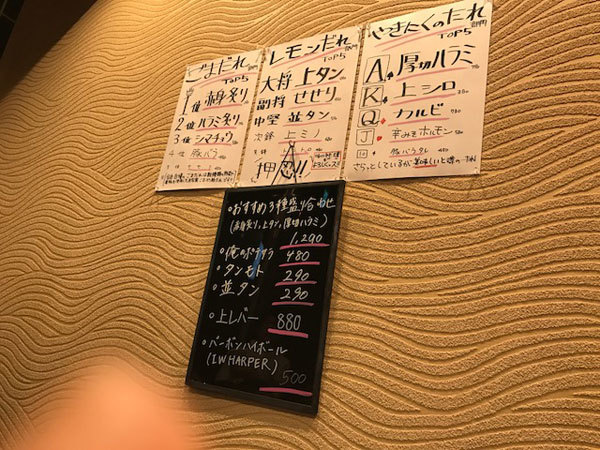 ごまだれ
部門
TOP5
1位 赤身炙り
2位 ハラミ炙り
3位 シマチョウ
4位 豚バラ
レモンだれ
部門
TOP5
大将 上タン
副将 せせり
中堅 並タン
次鋒 上ミノ
押忍!!
やきたくのたれ
部門
TOP5
A 厚切ハラミ
K 上シロ
Q カルビ
J 辛みそホルモン
10
•おすすめ3種盛り合わせ
(赤身炙り、上タン、厚切ハラミ)
1,290
•俺のポテサラ 480
•タンモト 290
•並タン 290
•上レバー 880
•バーボンハイボール
(IW HARPER)
500